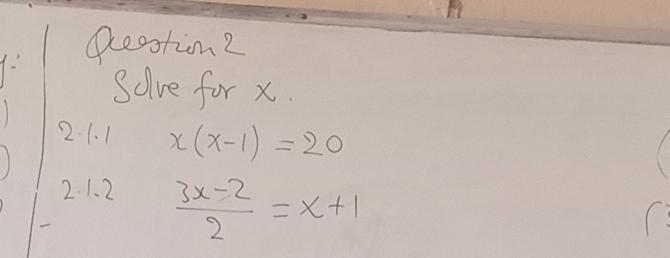 Question 2
Solve for x.
2.1.1 x(x-1) = 20
2.1.2 \frac{3x-2}{2} = x+1